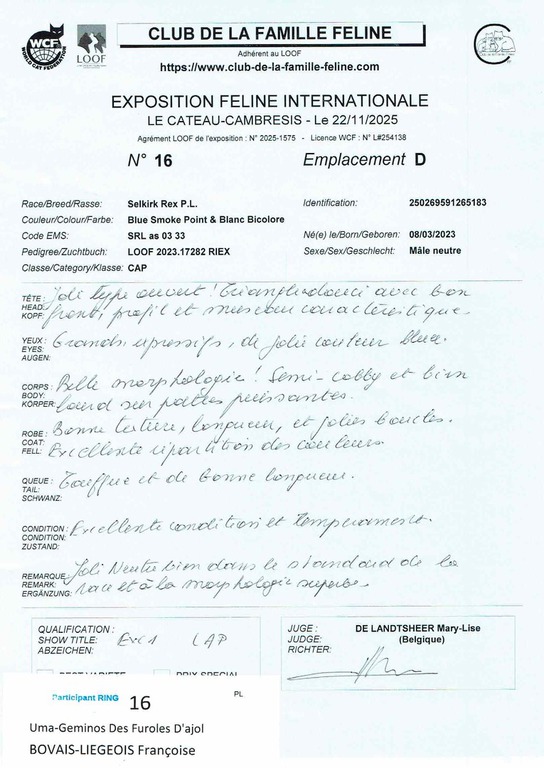 WCF
WORLD CAT FEDERATION
LOOF
CLUB DE LA FAMILLE FELINE
Adhérent au LOOF
https://www.club-de-la-famille-feline.com
EXPOSITION FELINE INTERNATIONALE
LE CATEAU-CAMBRESIS - Le 22/11/2025
Agrément LOOF de l'exposition : N° 2025-1575 - Licence WCF : N° L#254138
N° 16 Emplacement D
Race/Breed/Rasse: Selkirk Rex P.L. Identification: 250269591265183
Couleur/Colour/Farbe: Blue Smoke Point & Blanc Bicolore
Code EMS: SRL as 03 33 Né(e) le/Born/Geboren: 08/03/2023
Pedigree/Zuchtbuch: LOOF 2023.17282 RIEX Sexe/Sex/Geschlecht: Mâle neutre
Classe/Category/Klasse: CAP
TÊTE: Joli type ouvert ! Triangle adouci avec bon
HEAD:
KOPF: front, profil et museau caractéristique.
YEUX: Grands expressifs, de jolie couleur bleue.
EYES:
AUGEN:
CORPS: Belle morphologie ! Semi-cobby et bien
BODY:
KÖRPER: lourd sur pattes puissantes.
ROBE: Bonne texture, longueur, et jolies boucles.
COAT:
FELL: Excellente répartition des couleurs
QUEUE: Touffue et de bonne longueur.
TAIL:
SCHWANZ:
CONDITION: Excellente condition et tempérament.
CONDITION:
ZUSTAND:
REMARQUE: Joli Neutre bien dans le standard de la
REMARK:
ERGÄNZUNG: race et à la morphologie superbe.
QUALIFICATION :
SHOW TITLE: Exc 1 CAP
ABZEICHEN:
JUGE : DE LANDTSHEER Mary-Lise
JUDGE: (Belgique)
RICHTER:
BEST VARIETE PRIX SPECIAL
Participant RING 16 PL
Uma-Geminos Des Furoles D'ajol
BOVAIS-LIEGEOIS Françoise